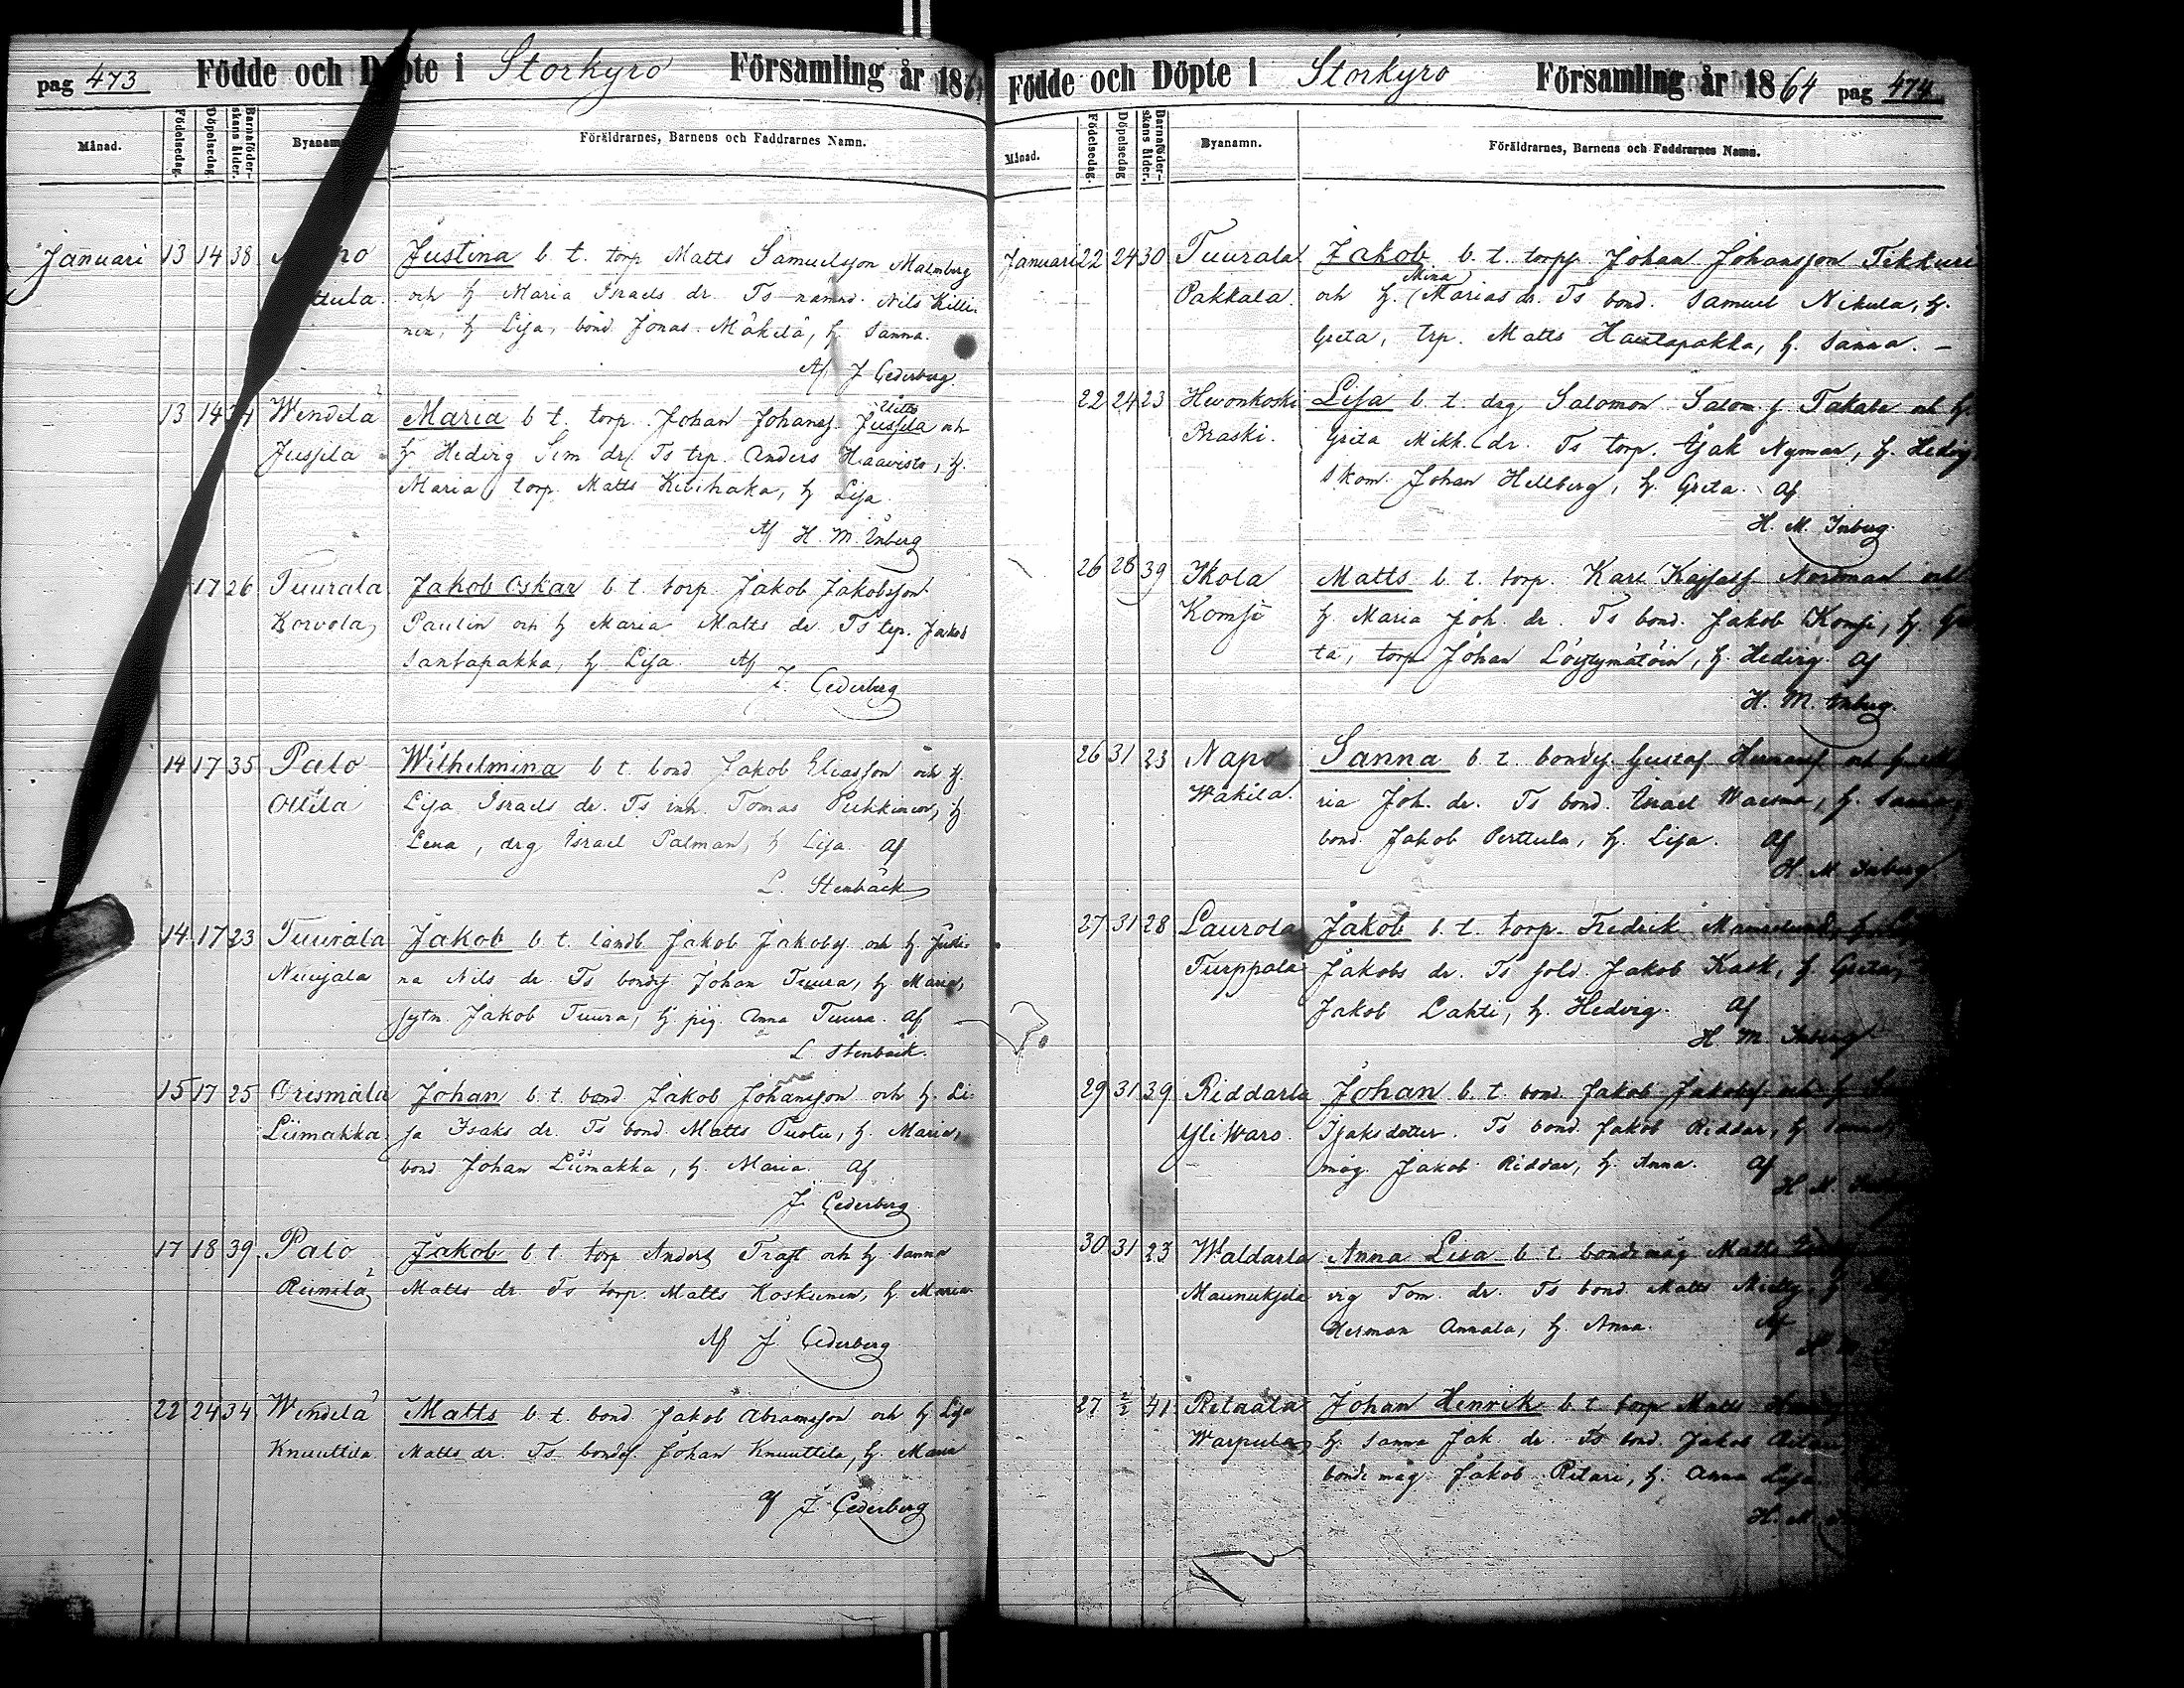 pag 473 Födde och Döpte i Storkyro Församling år 1864
Månad. Födelsedag. Döpelsedag. Barnaföderskans ålder. Byanamn Föräldrarnes, Barnens och Faddrarnes Namn.
Januari 13 14 38 Justina b t. torp Matts Samuelsson Malmberg
och h Maria Israels dr. Ts nämnd. Nils Killi-
nen, h Lisa, bond Jonas Mäkilä, h Sanna.
Af J Cederberg.
13 14 34 Wendelä Maria b t. torp. Johan Johans. Jussila och
Jussila h Hedvig Sim dr. Ts trp. Anders Haavisto, h.
Maria, torp. Matts Kitihaka, h Lisa.
Af H. M. Inberg
17 26 Tuurala Jakob Oskar b t. torp. Jakob Jakobsson
Korvola Paulin och h Maria Matts dr. Ts trp. Jakob
Santapakka, h Lisa. Af
J. Cederberg
14 17 35 Palo Wilhelmina b t. bond Jakob Eliasson och h.
Ollila Lisa Israels dr. Ts inh. Tomas Puhkinen, h
Lena, drg Israel Palman, h Lisa. Af
L. Stenbäck
14 17 23 Tuurala Jakob b. t. landb. Jakob Jakobs. och h. Justi-
Niinjala na Nils dr. Ts bonds. Johan Tuura, h Maria,
sytn. Jakob Tuura, h pig. Anna Tuura. Af
L Stenbäck.
15 17 25 Orismala Johan b. t. bond Jakob Johansson och h. Li-
Liimakka sa Isaks dr. Ts bond. Matts Puotu, h. Maria,
bond Johan Liimakka, h. Maria. Af
J. Cederberg
17 18 39 Palo Jakob b t. torp Anders Trast och h Sanna
Riimilä Matts dr. Ts torp. Matts Koskinen, h. Maria
Af J. Cederberg
22 24 34 Wendelä Matts b t. bond Jakob Abramsson och h Lisa
Knuuttila Matts dr. Ts bonds. Johan Knuuttila, h. Maria
af J. Cederberg
Födde och Döpte i Storkyro Församling år 1864 pag 474
Månad. Födelsedag. Döpelsedag Barnaföderskans ålder. Byanamn. Föräldrarnes, Barnens och Faddrarnes Namn.
Januari 22 24 30 Tuurala Jakob b. t. torps. Johan Johansson Tikkuri
Mina
Pakkala. och h. Marias dr. Ts bond. Samuel Nikula, h.
Greta, trp. Matts Hautapakka, h. Sanna. –
22 24 23 Hevonkoski Lisa b t. drg Salomon Salom. s. Takala och h
Praski. Greta Mikk. dr. Ts torp. Isak Nyman, h. Hedvig
skom. Johan Hellberg, h. Greta. Af
H. M. Inberg.
26 28 39 Ikola Matts b. t. torp. Karl Nordman och
Komsi h Maria Joh. dr. Ts bond. Jakob Komsi, h. Gre
ta, torp Johan Löyttymätöin, h. Hedvig Af
H. M. Inberg.
26 31 23 Napo Sanna b. t. bonds. Gustaf och h
Wäkilä. ria Joh. dr. Ts bond. Israel h. Sanna,
bond. Jakob Perttula, h. Lisa. Af
H. M Inberg
27 31 28 Laurola Jakob b. t. torp. Fredrik
Turppala Jakobs dr. Ts sold. Jakob Kask, h. Greta,
Jakob Lahti, h. Hedvig. Af
H M. Inberg
29 31 39 Riddarla Johan b. t. bond. Jakob Jakobs. och h
Yli Waro. Isaksdotter. Ts bond. Jakob Riddar, h Sanna,
måg. Jakob Riddar, h. Anna. Af
H M.
30 31 23 Waldarla Anna Lisa b t. bondemåg Matts
Maunuksela vig Tom. dr. Ts bond Matts h
Herman Annala, h. Anna. Af
27 2/2 41 Ritaala Johan Henrik b. t. torp Matts
Warpula h. Sanna Jak. dr. Ts bond. Jakob
bonde måg. Jakob Ritari, h. Anna Lisa
H. M.